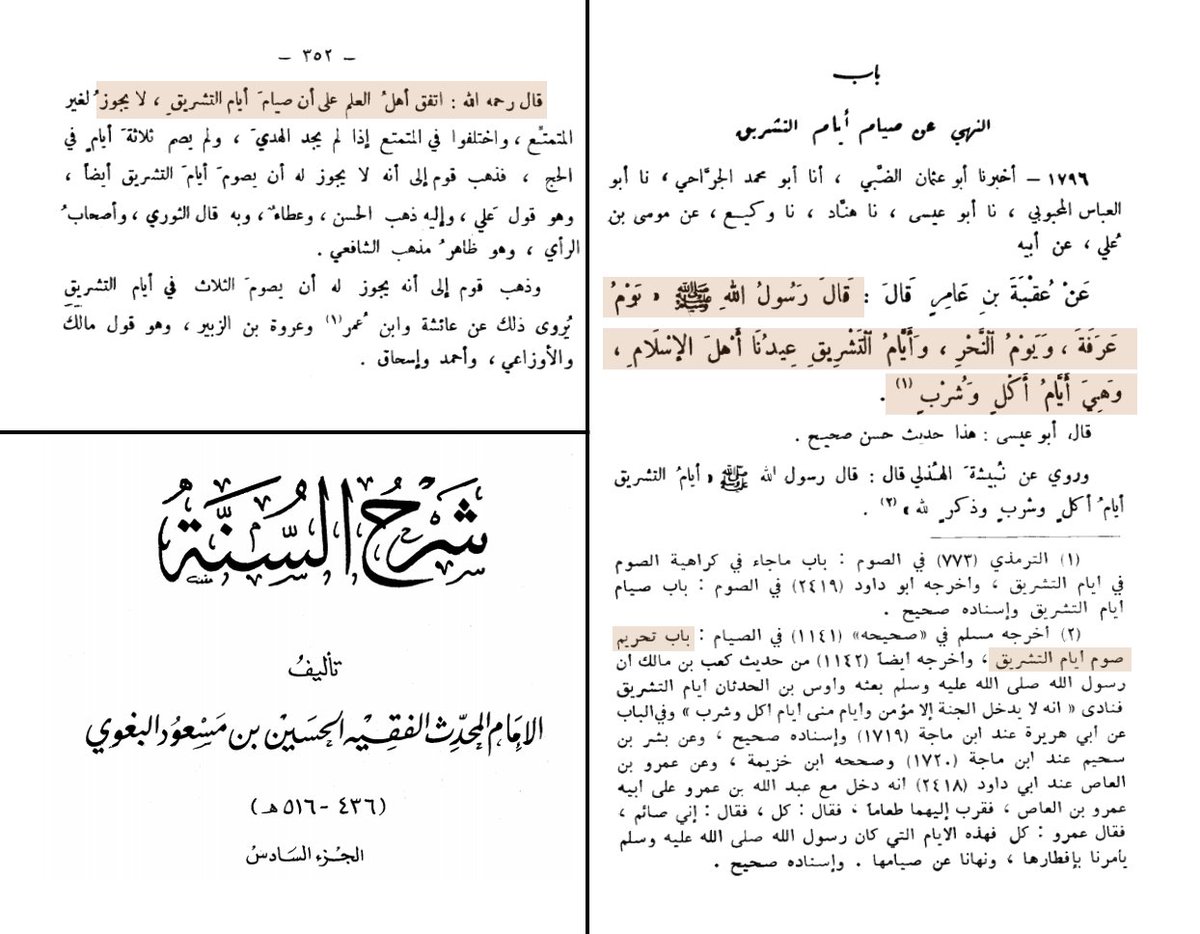 باب
النهي عن صيام أيام التشريق
١٧٩٦ – أخبرنا أبو عثمان الضَّبي ، أنا أبو محمد الجرَّاحي ، نا أبو
العباس المحبوبي ، نا أبو عيسى ، نا هنَّاد ، نا وكيع ، عن موسى بن
عُلي ، عن أبيه
عَنْ عُقْبَةَ بنِ عَامِرٍ قَالَ : قَالَ رَسُولُ اللهِ ﷺ « يَوْمُ
عَرَفَةَ ، وَيَوْمُ ٱلنَّحْرِ ، وَأَيَّامُ ٱلتَّشْرِيقِ عِيدُنَا أَهْلَ الإِسْلَامِ ،
وَهِيَ أَيَّامُ أَكْلٍ وَشُرْبٍ (١) .
قال أبو عيسى : هذا حديث حسن صحيح .
وروي عن نُبيشةَ الهُذلي قال : قال رسول الله ﷺ « أيامُ التشريق
أيامُ أكلٍ وشربٍ وذكرٍ لله » (٢) .
(١) الترمذي (٧٧٣) في الصوم : باب ماجاء في كراهية الصوم
في ايام التشريق ، واخرجه ابو داود (٢٤١٩) في الصوم : باب صيام
ايام التشريق وإسناده صحيح .
(٢) أخرجه مسلم في «صحيحه» (١١٤١) في الصيام : باب تحريم
صوم أيام التشريق ، وأخرجه أيضاً (١١٤٢) من حديث كعب بن مالك أن
رسول الله صلى الله عليه وسلم بعثه وأوس بن الحدثان أيام التشريق
فنادى « انه لا يدخل الجنة إلا مؤمن وايام منى أيام اكل وشرب » وفي الباب
عن ابي هريرة عند ابن ماجة (١٧١٩) وإسناده صحيح ، وعن بشر بن
سحيم عند ابن ماجة (١٧٢٠) وصححه ابن خزيمة ، وعن عمرو بن
العاص عند ابي داود (٢٤١٨) انه دخل مع عبد الله بن عمرو على أبيه
عمرو بن العاص ، فقرب إليهما طعاماً ، فقال : كل ، فقال : إني صائم ،
فقال عمرو : كل فهذه الايام التي كان رسول الله صلى الله عليه وسلم
يأمرنا بإفطارها ، ونهانا عن صيامها . وإسناده صحيح .
– ٣٥٢ –
قال رحمه الله : اتفق أهلُ العلم على أن صيامَ أيام التشريق ، لا يجوز لغير
المتمتِّع ، واختلفوا في المتمتع إذا لم يجد الهديَ ، ولم يصم ثلاثةَ أيامٍ في
الحج ، فذهب قوم إلى أنه لا يجوز له أن يصومَ أيامَ التشريق أيضاً ،
وهو قول عَلي ، وإليه ذهب الحسن ، وعطاء ، وبه قال الثوري ، وأصحابُ
الرأي ، وهو ظاهرُ مذهب الشافعي .
وذهب قوم إلى أنه يجوز له أن يصومَ الثلاث في أيام التشريق
يُروى ذلك عن عائشة وابن عُمر (١) وعروة بن الزبير ، وهو قول مالك
والأوزاعي ، وأحمد وإسحاق .
شَرْحُ السُّنَّة
تأليفُ
الإمَام المحَدِّث الفقِيه الحسَيْن بن مَسْعُود البغوي
(٤٣٦ – ٥١٦ هـ)
الجزء السَّادسُ